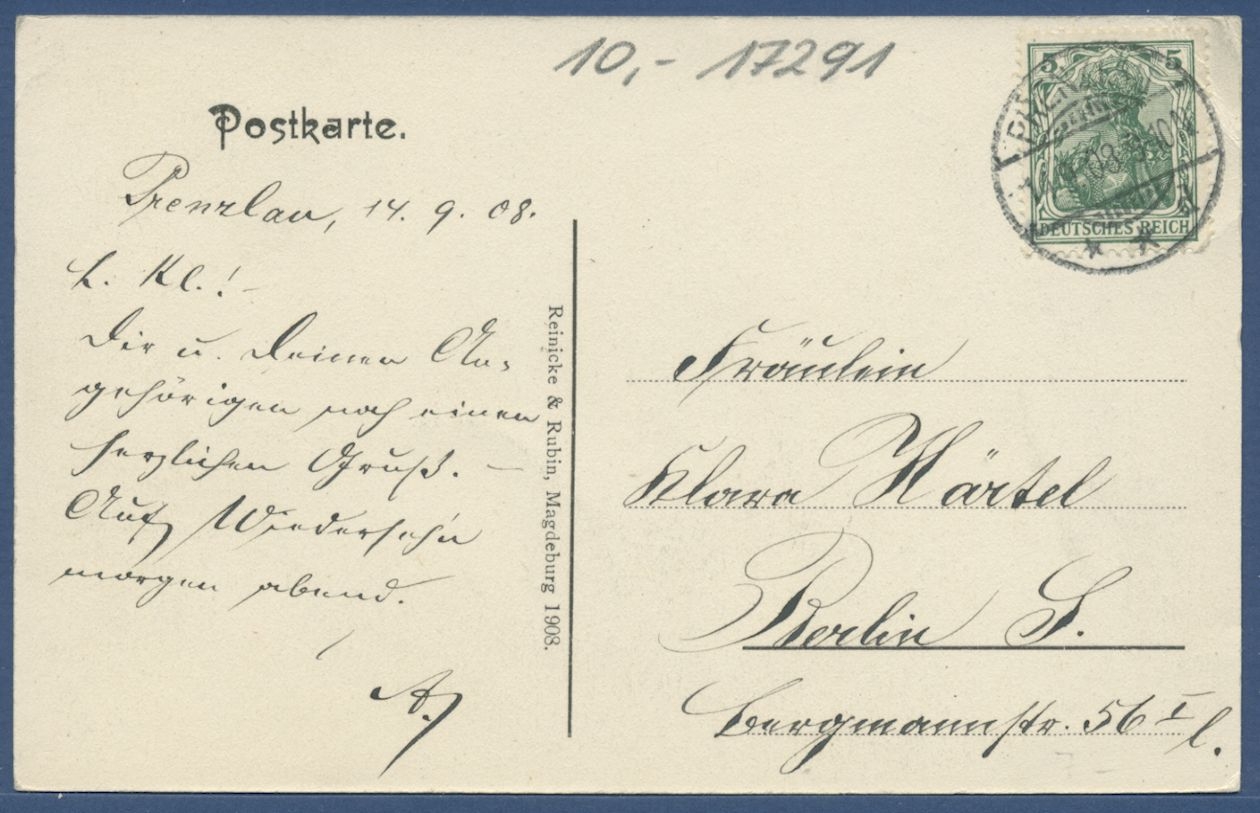 10,- 17291
Postkarte.
Prenzlau, 14. 9. 08.
L. Kl.! -
Dir u. Deinen An-
gehörigen noch einen
herzlichen Gruß. -
Auf Wiedersehn
morgen abend.
A.
Reinicke & Rubin, Magdeburg 1908.
5 5
DEUTSCHES REICH
Fräulein
Klara Härtel
Berlin S.
Bergmannstr. 56 I l.